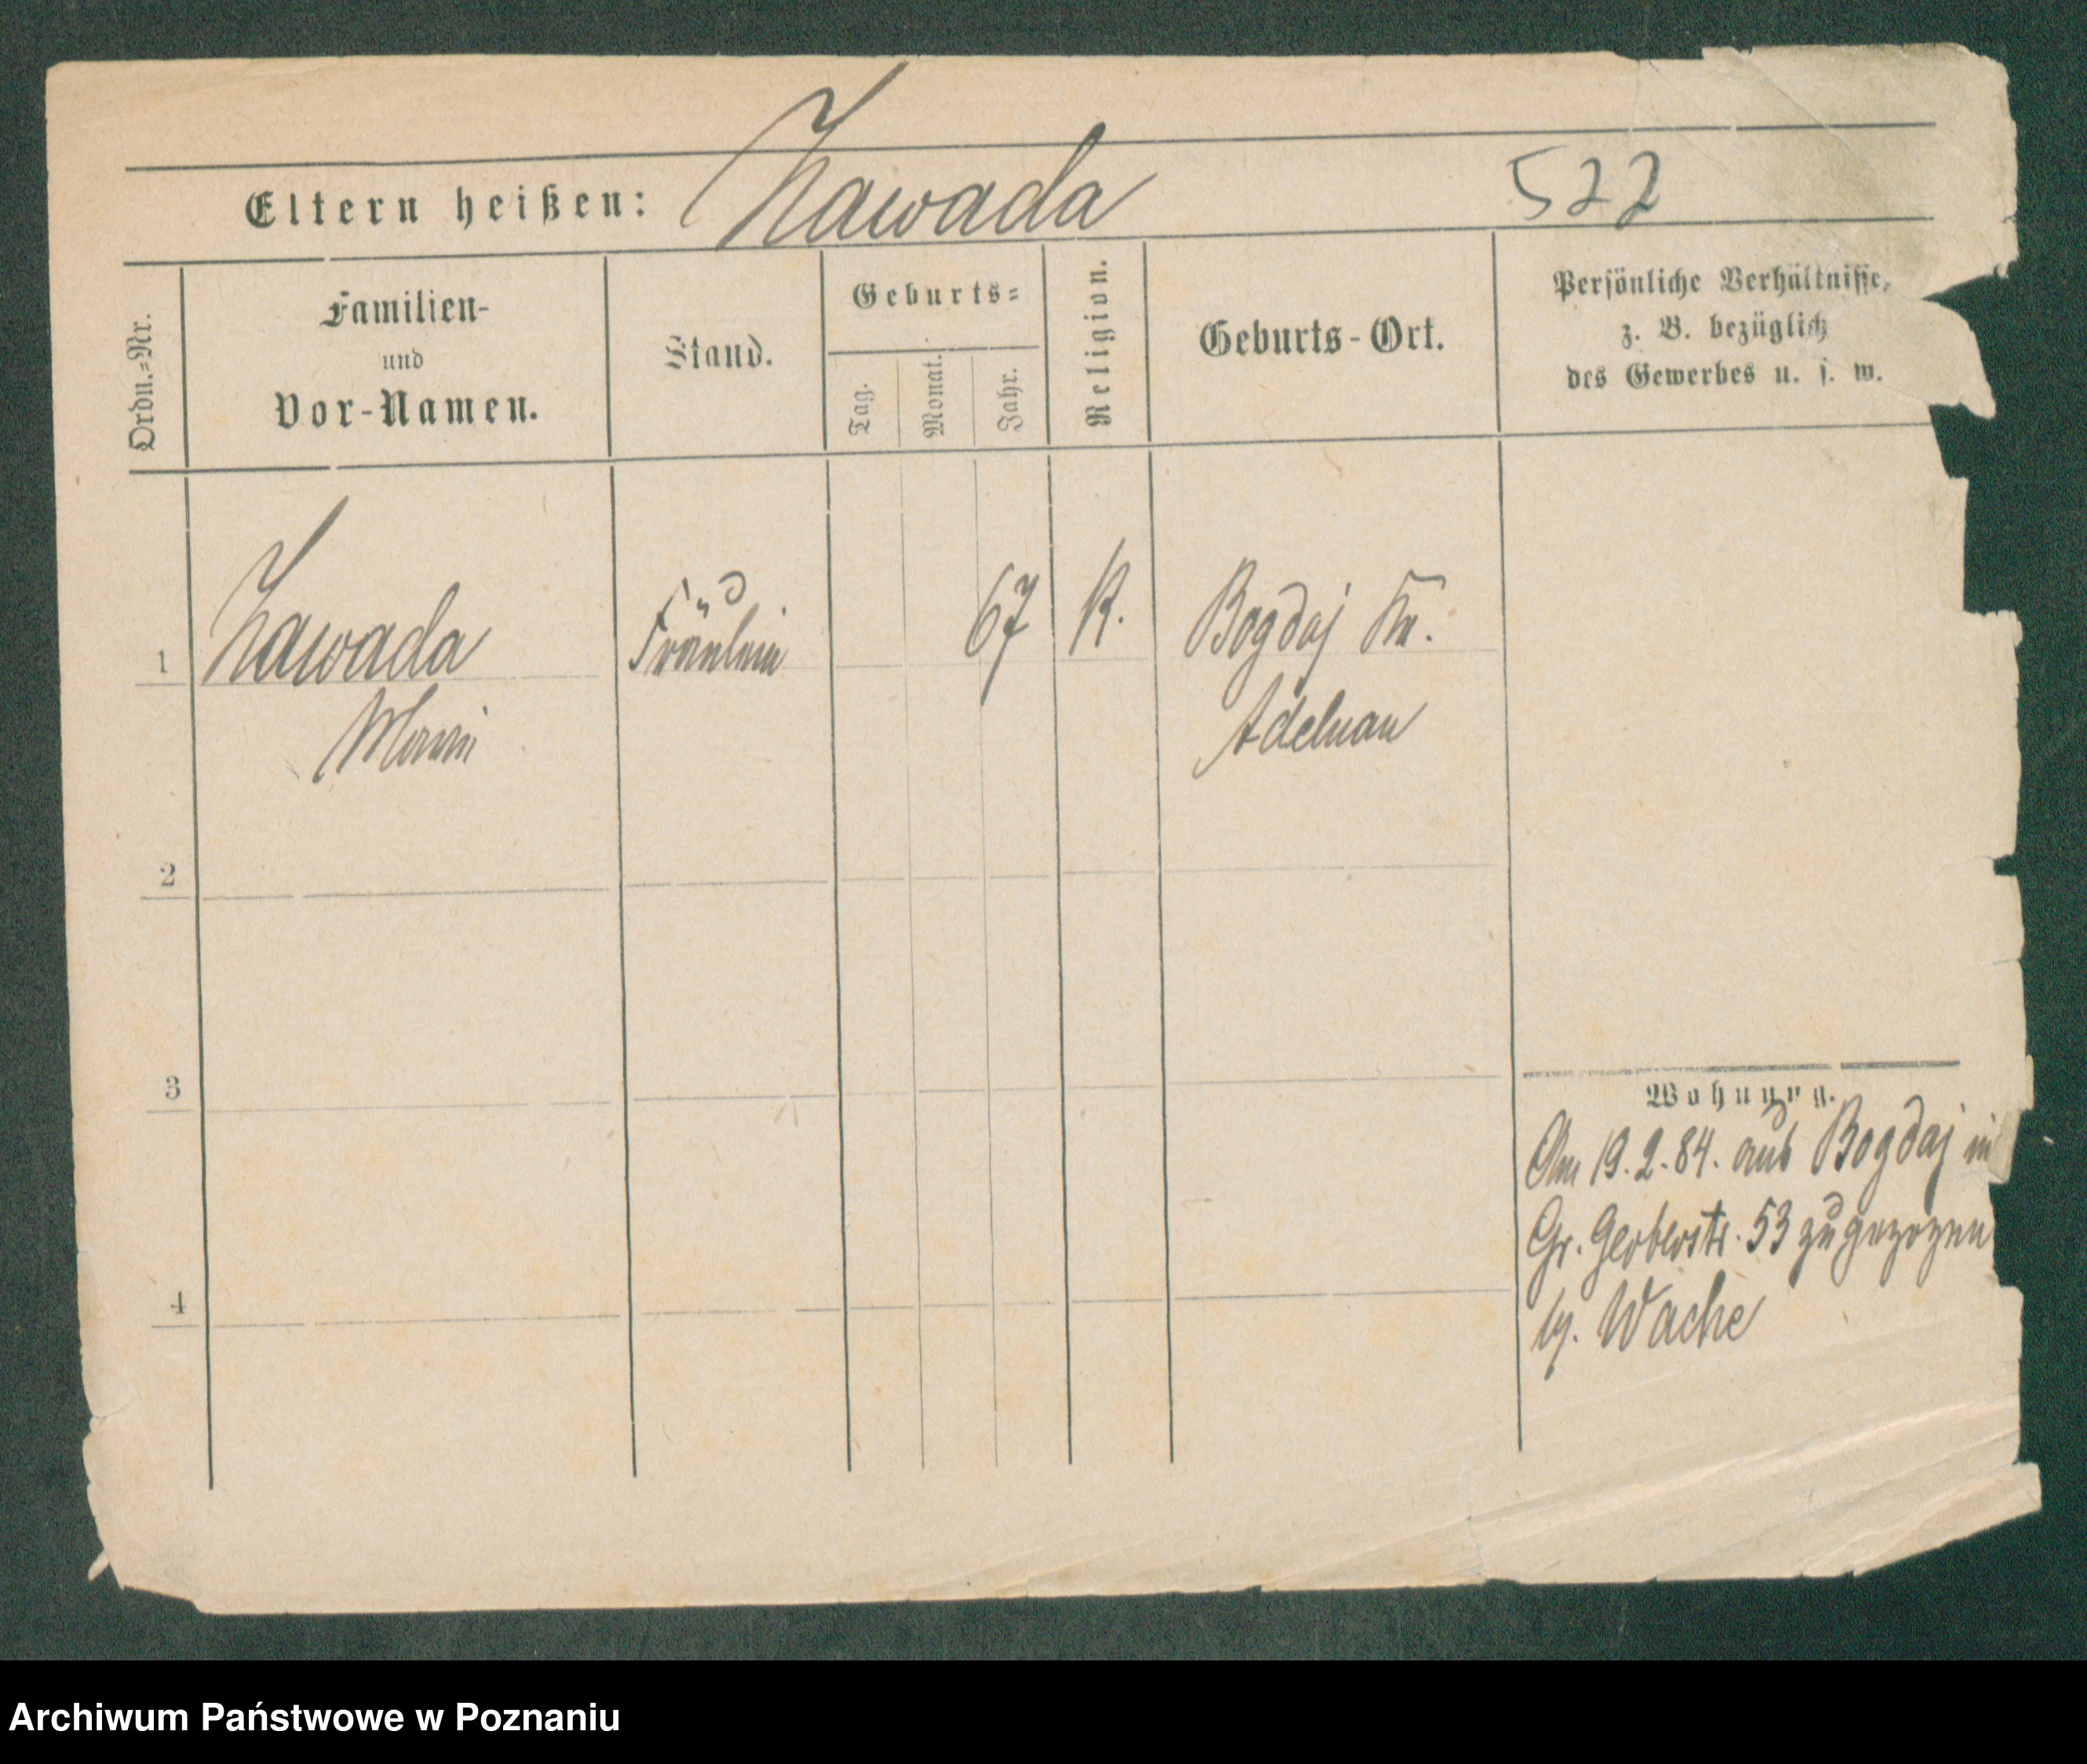 Eltern heißen: Zawada 522
Ordn.-Nr.
Familien-
und
Vor-Namen.
Stand.
Geburts-
Tag.
Monat.
Jahr.
Religion.
Geburts-Ort.
Persönliche Verhältnisse,
z. B. bezüglich
des Gewerbes u. s. w.
1 Zawada Fräulein 67 K. Bogdaj Kr.
Marie Adelnau
2
3
Wohnung.
Am 19.2.84. aus Bogdaj in
Gr. Gerberstr. 53 zugezogen
4
Wache
Archiwum Państwowe w Poznaniu